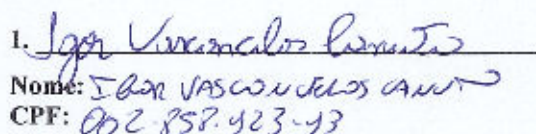 1. Igor Vasconcelos Canuto
Nome: IGOR VASCONCELOS CANUTO
CPF: 002.858.423-43